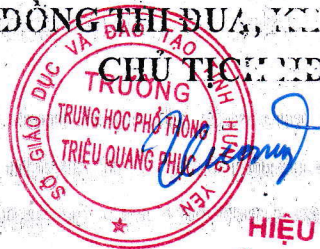 ĐỒNG THI ĐUA,
CHỦ TỊCH HĐ
SỞ GIÁO DỤC VÀ ĐÀO TẠO TỈNH HƯNG YÊN
TRƯỜNG
TRUNG HỌC PHỔ THÔNG
TRIỆU QUANG PHỤC
HIỆU